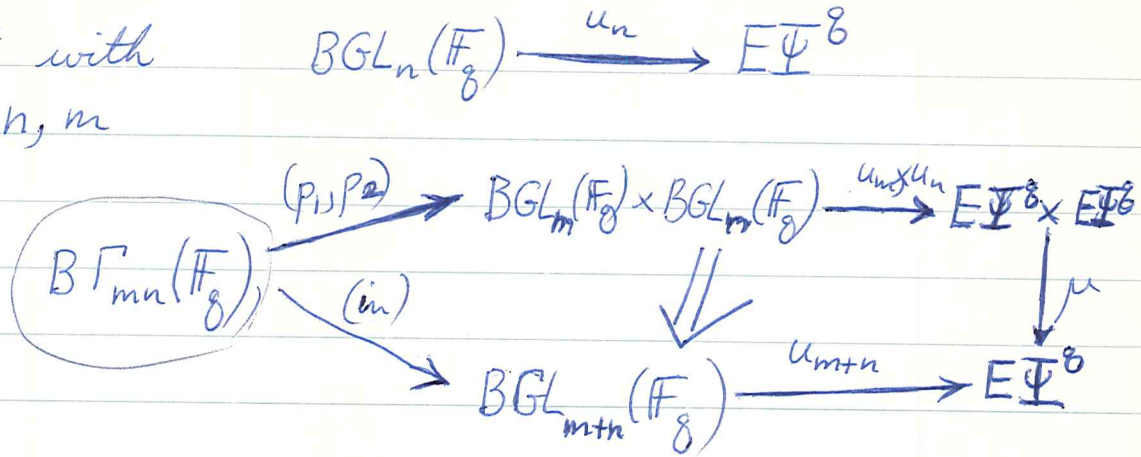 with BGL_n(𝔽_q) u_n EΨ^q
n, m
(p_1, p_2) BGL_m(𝔽_q) × BGL_n(𝔽_q) u_m×u_n EΨ^q × EΨ^q
BΓ_{mn}(𝔽_q), (in) μ
BGL_{m+n}(𝔽_q) u_{m+n} EΨ^q